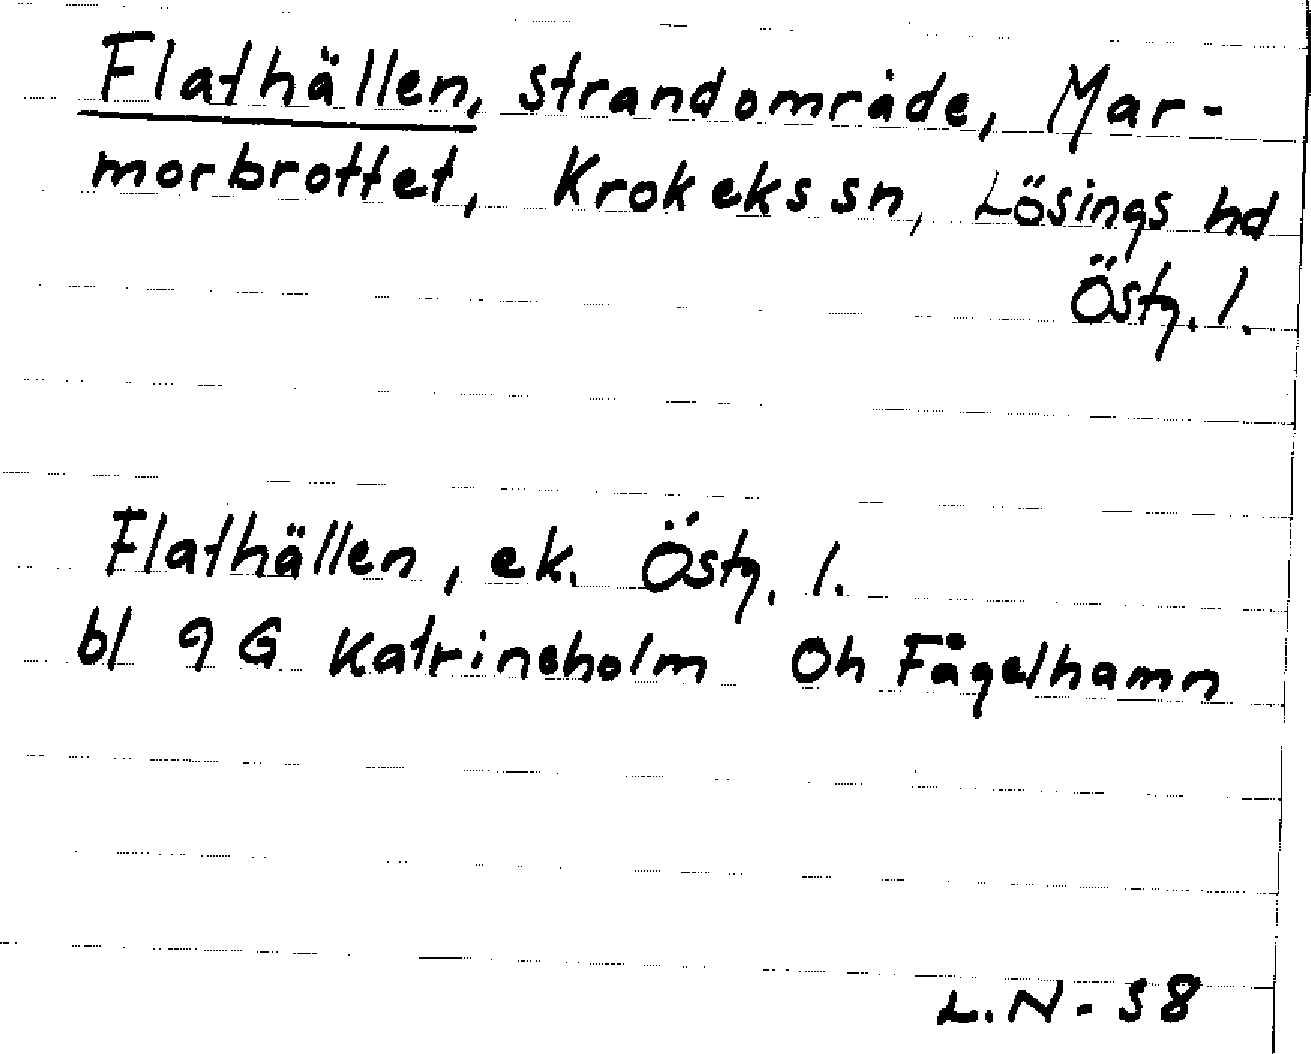 Flathällen, strandområde, Mar-
morbrottet, Krokeks sn, Lösings hd
Östg. l.
Flathällen, ek. Östg. l.
bl 9 G Katrineholm Oh Fågelhamn
L.N-58